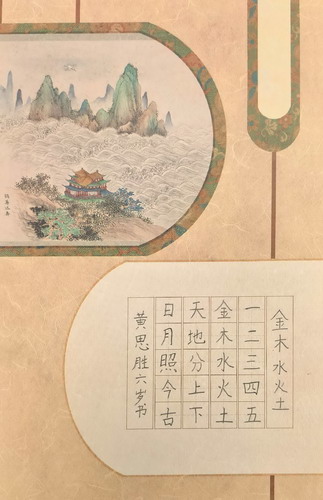 金木水火土
一二三四五
金木水火土
天地分上下
日月照今古
黄思胜六岁书